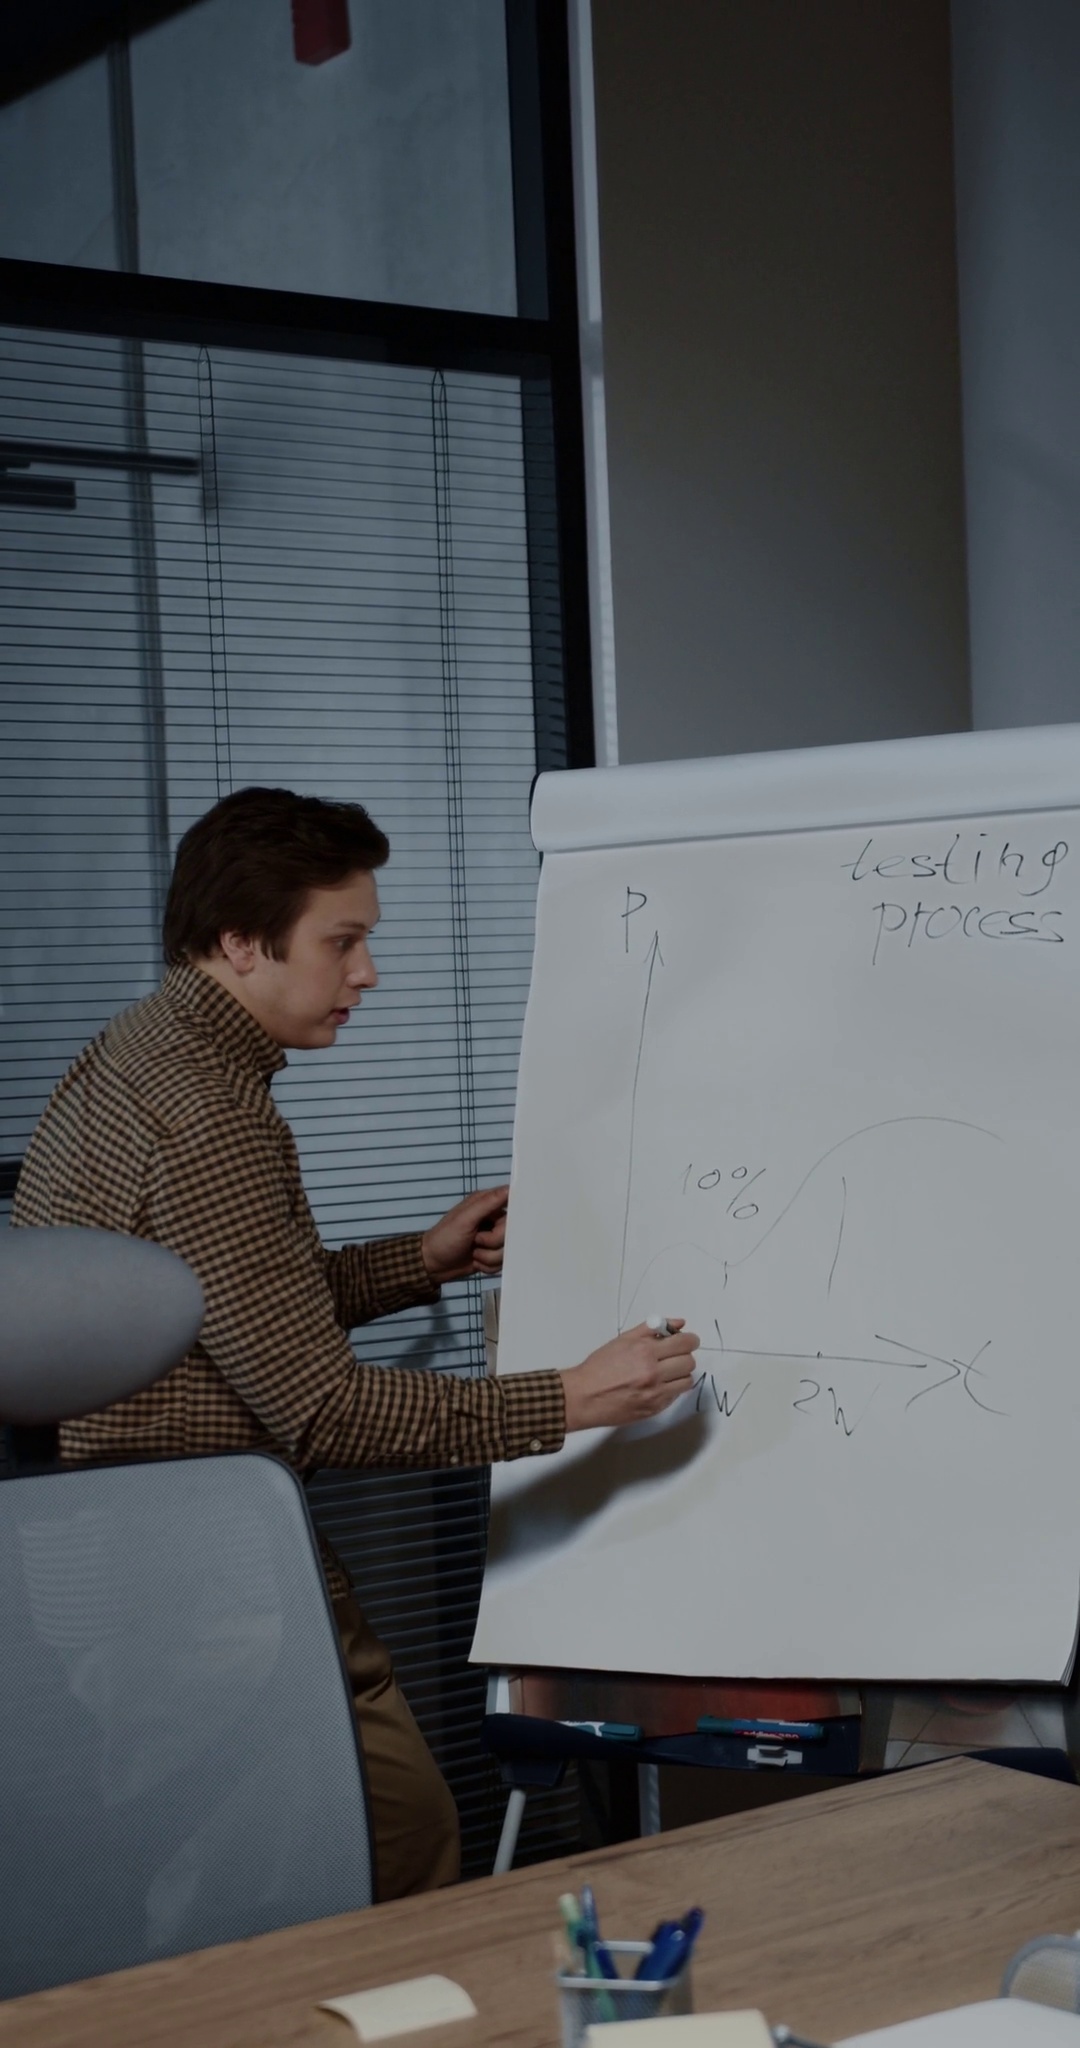 testing
process
P
10%
1W 2W
t